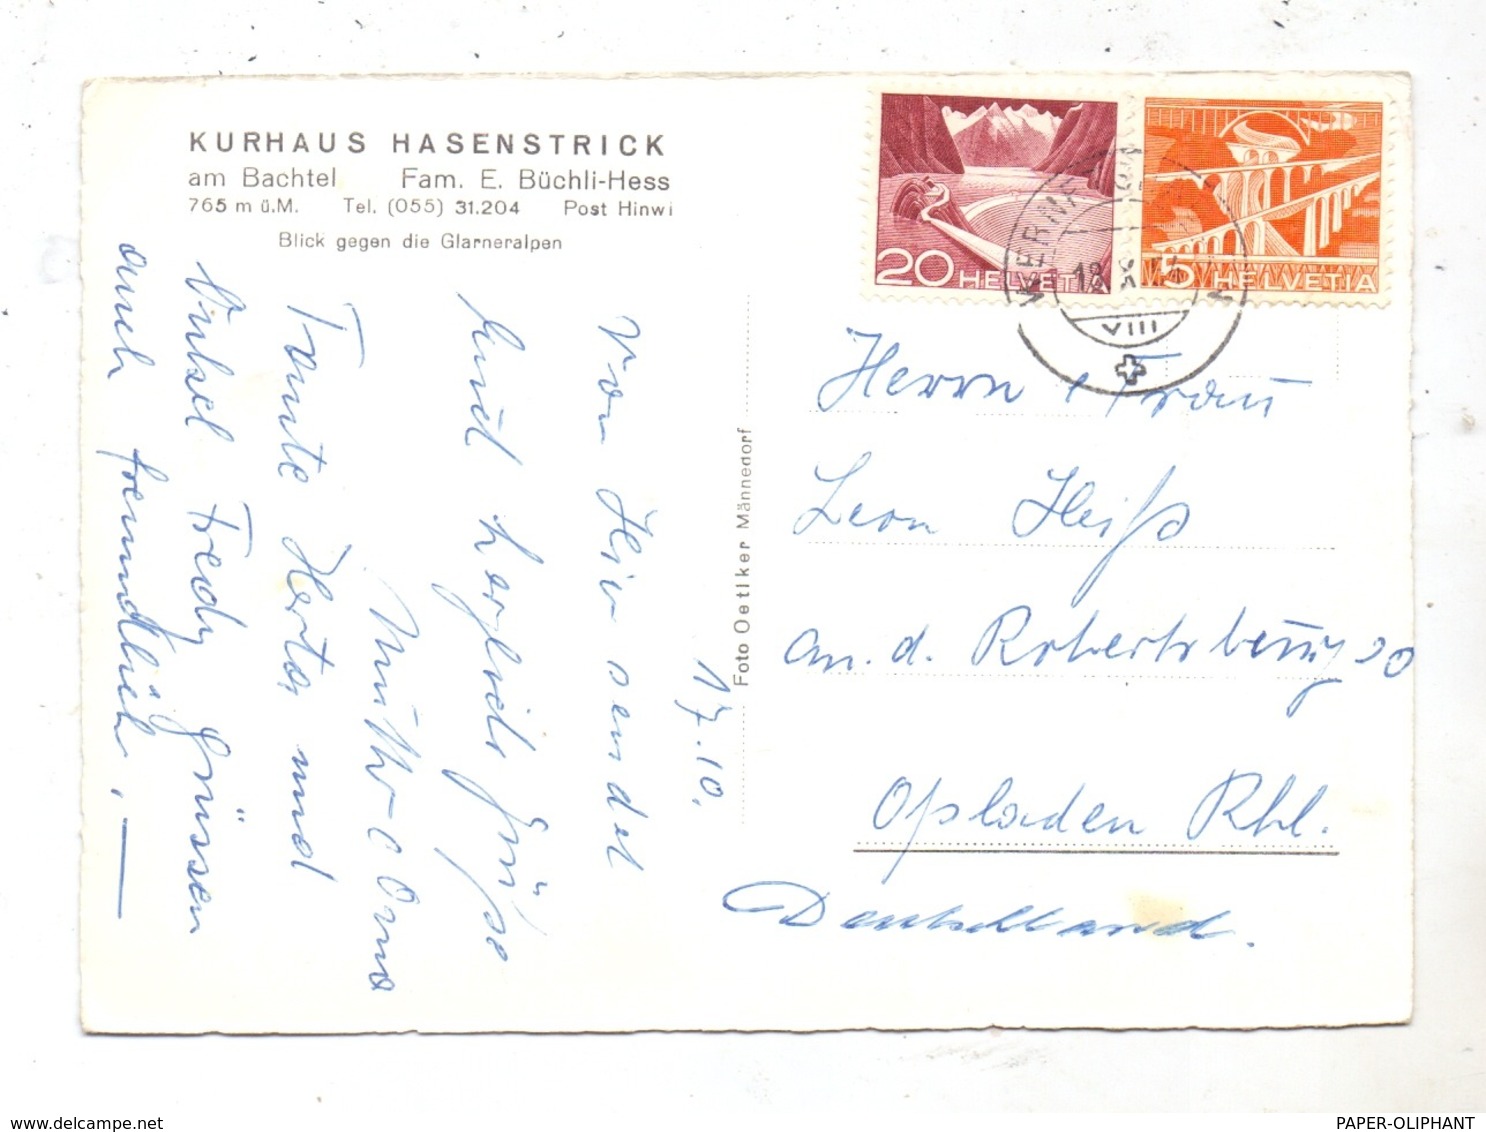 KURHAUS HASENSTRICK
am Bachtel Fam. E. Büchli-Hess
765 m ü.M. Tel. (055) 31.204 Post Hinwi
Blick gegen die Glarneralpen
17.10.
Von Hier sendet
Euch herzliche Grüße
Mutter & Oma
Tante Herta und
Onkel Fredy grüssen
auch freundlich.
Foto Oetiker Männedorf
20 HELVETIA
5 HELVETIA
18. X.
VIII
Herrn & Frau
Leon Heiß
an. d. Robertsburg 20
Opladen Rhl.
Deutschland.
www.delcampe.net
PAPER-OLIPHANT